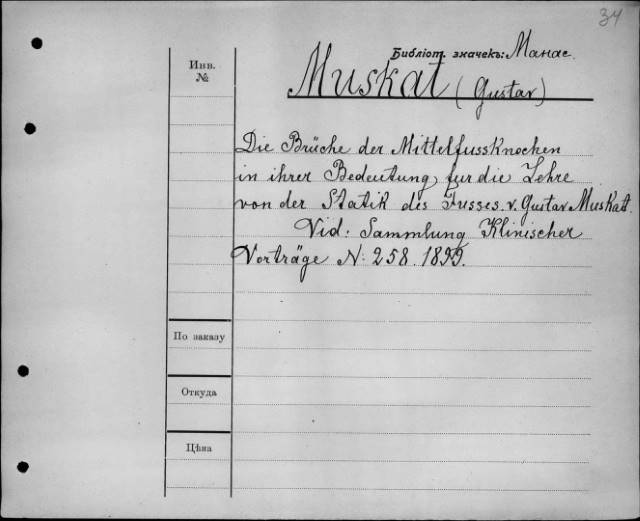 34
Библіот. значекъ: Манас.
Инв.
№
Muskat (Gustav)
Die Brüche der Mittelfussknochen
in ihrer Bedeutung fur die Lehre
von der Statik des Fusses. v. Gustav Muskat.
Vid: Sammlung Klinischer
Vorträge N: 258. 1899.
По заказу
Откуда
Цѣна